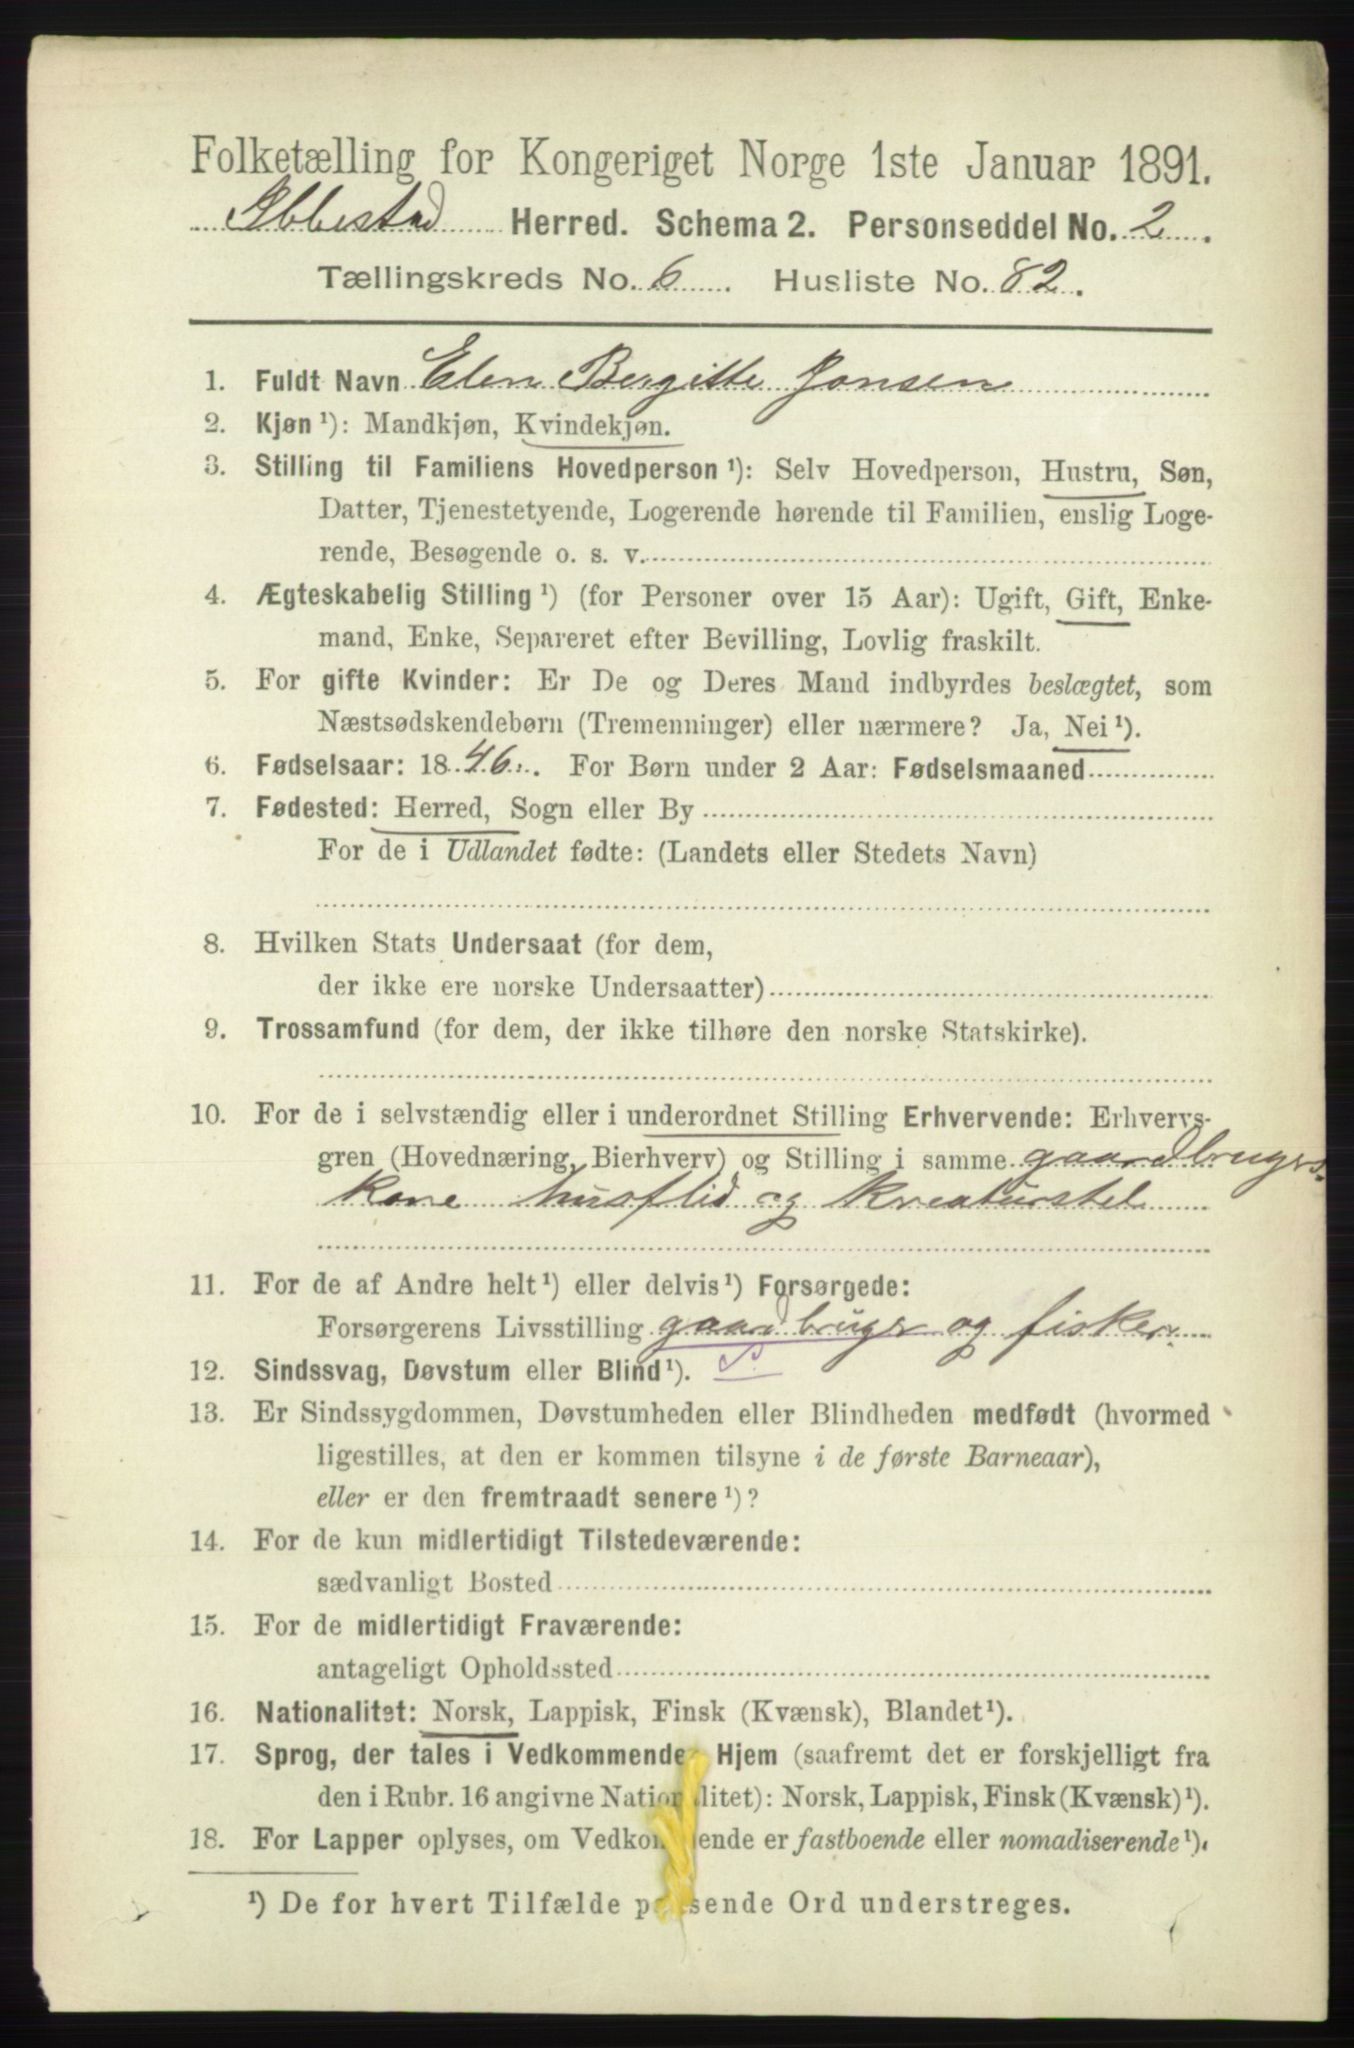 Folketælling for Kongeriget Norge 1ste Januar 1891.
Ibbestad Herred. Schema 2. Personseddel No. 2.
Tællingskreds No. 6. Husliste No. 82.
1. Fuldt Navn Elen Bergitte Jonsen
2. Kjøn ¹): Mandkjøn, Kvindekjøn.
3. Stilling til Familiens Hovedperson ¹): Selv Hovedperson, Hustru, Søn,
Datter, Tjenestetyende, Logerende hørende til Familien, enslig Loge-
rende, Besøgende o. s. v.
4. Ægteskabelig Stilling ¹) (for Personer over 15 Aar): Ugift, Gift, Enke-
mand, Enke, Separeret efter Bevilling, Lovlig fraskilt.
5. For gifte Kvinder: Er De og Deres Mand indbyrdes beslægtet, som
Næstsødskendebørn (Tremenninger) eller nærmere? Ja, Nei ¹).
6. Fødselsaar: 1846. For Børn under 2 Aar: Fødselsmaaned
7. Fødested: Herred, Sogn eller By
For de i Udlandet fødte: (Landets eller Stedets Navn)
8. Hvilken Stats Undersaat (for dem,
der ikke ere norske Undersaatter)
9. Trossamfund (for dem, der ikke tilhøre den norske Statskirke).
10. For de i selvstændig eller i underordnet Stilling Erhvervende: Erhvervs-
gren (Hovednæring, Bierhverv) og Stilling i samme gaardbrugers
kone husflid og kreaturstel
11. For de af Andre helt ¹) eller delvis ¹) Forsørgede:
Forsørgerens Livsstilling gaardbruger og fisker
12. Sindssvag, Døvstum eller Blind ¹). S
13. Er Sindssygdommen, Døvstumheden eller Blindheden medfødt (hvormed
ligestilles, at den er kommen tilsyne i de første Barneaar),
eller er den fremtraadt senere ¹)?
14. For de kun midlertidigt Tilstedeværende:
sædvanligt Bosted
15. For de midlertidigt Fraværende:
antageligt Opholdssted
16. Nationalitet: Norsk, Lappisk, Finsk (Kvænsk), Blandet ¹).
17. Sprog, der tales i Vedkommendes Hjem (saafremt det er forskjelligt fra
den i Rubr. 16 angivne Nationalitet): Norsk, Lappisk, Finsk (Kvænsk) ¹).
18. For Lapper oplyses, om Vedkommende er fastboende eller nomadiserende ¹).
¹) De for hvert Tilfælde passende Ord understreges.